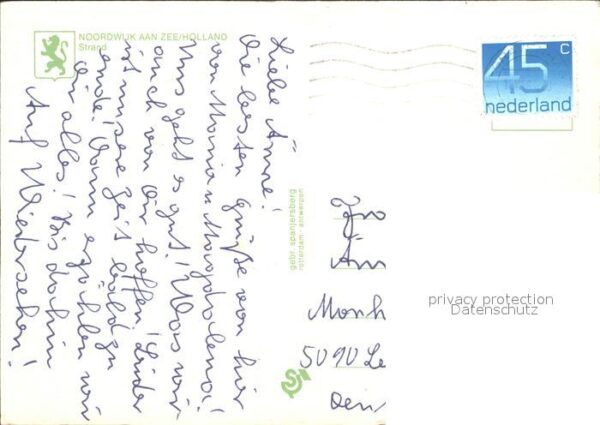 NOORDWIJK AAN ZEE/HOLLAND
Strand
Liebe Änne!
Die besten Grüße von hier
von Maria u Magdalena!
Uns geht es gut! Was wir
auch von Dir hoffen! Leider
ist unsere Zeit bald zu
ende! Dann erzählen wir
Dir alles! Bis dahin
Auf Wiedersehen!
gebr. spanjersberg
rotterdam-antwerpen
45 c
nederland
Monh
5090 Le
privacy protection
Datenschutz